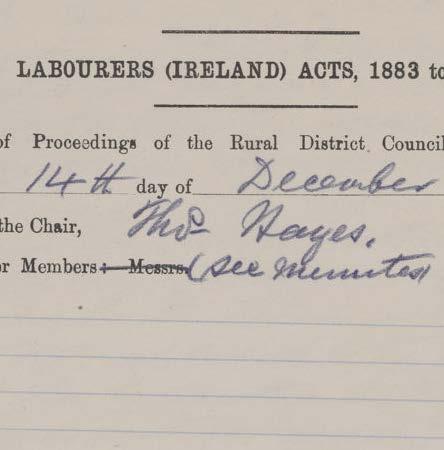 LABOURERS (IRELAND) ACTS, 1883 to
of Proceedings of the Rural District Council
14th day of December
the Chair, Thos Hayes.
or Members:—Messrs. (see minutes)